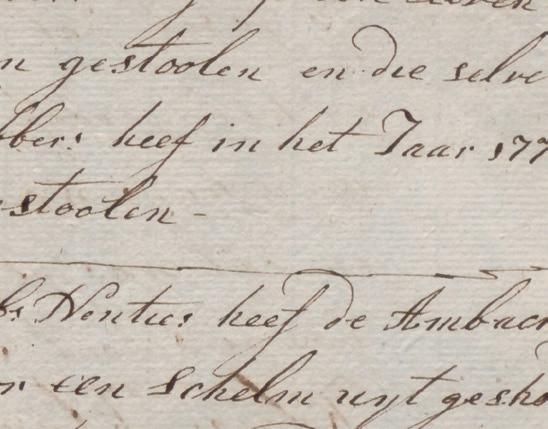 gestoolen en die selve
bbers heef in het Jaar 177
stoolen -
heef de Ambach
r een Schelm uyt gesho